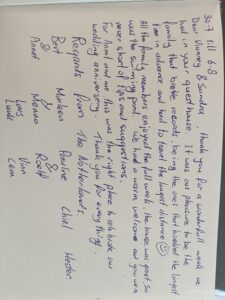 30-7 till 6-8
Dear Nunez & Sandra, thank you for a wonderfull week we
had in your guesthouse. It was our pleasure to be the
family that broke records being the ones that booked the longest
time in advance and had to travel the longest distance ☺
All the family members enjoyed the full week, the house was great so
was the swimming pool. We had a warm welcome and you were
never short of tips and suggestions.
For Annet and me this was the right place to celebrate our
wedding anniversary. Thank you for everything!
Regards from The Netherlands.
Bert Marleen Pauline Chiel Hester
& & &
Annet Menno Roelf
Lars Vinn
Luuk Cem